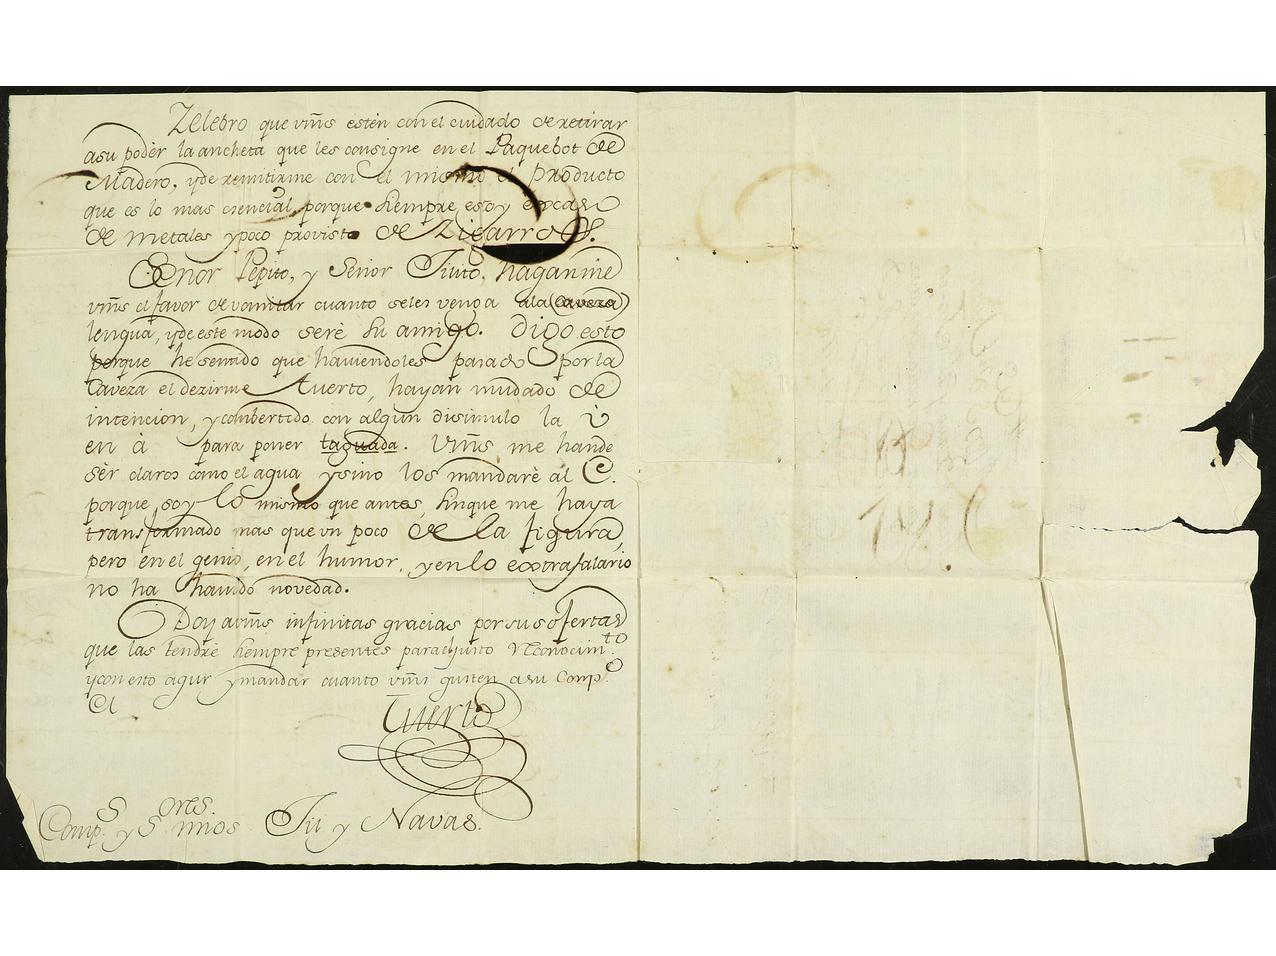 Zelebro que vm̃s estèn con el cuidado de retirar
asu podèr la ancheta que les consigne en el Paquebot de
Madero, yde remitirme con el mismo el Producto
que es lo mas esencial, porque siempre estoy escaso
de metales ypoco provisto de Zigarros.
Señor Pepito, y Señor Tiito, haganme
vm̃s el favor de vomitar cuanto seles venga ala (caveza)
lengua, yde este modo serè su amigo. Digo esto
porque he sentido que haviendoles pasado por la
caveza el dezirme Tuerto, hayan mudado de
intencion, y combertido con algun disimulo la
en à para poner taguada. Vm̃s me hande
sèr claros como el agua ysino los mandarè al C.
porque soy lo mismo que antes, sinque me haya
transformado mas que vn poco de la figura,
pero en el genio, en el humor, yenlo extrafalario
no ha havido novedad.
Doy avm̃s infinitas gracias por sus ofertas
que las tendrè siempre presentes para el justo reconocim.to
ycon esto agur ymandar cuanto vm̃s gusten a su Comp.o
El
Tuerto
Comp.s y S.ores mios Tii y Navas.